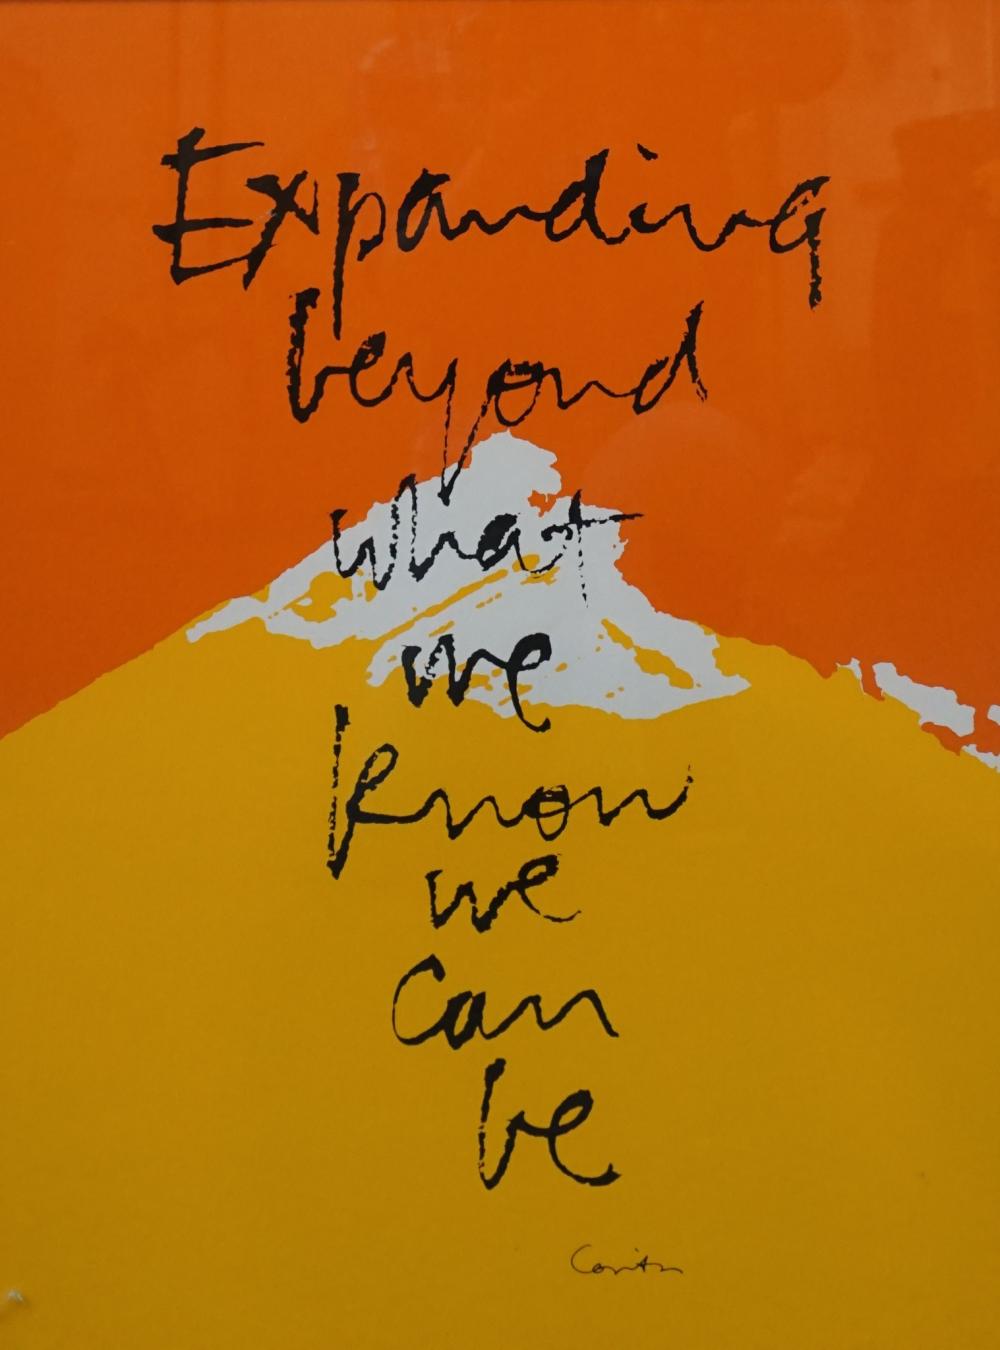 Expanding
beyond
what
we
know
we
can
be
Corita